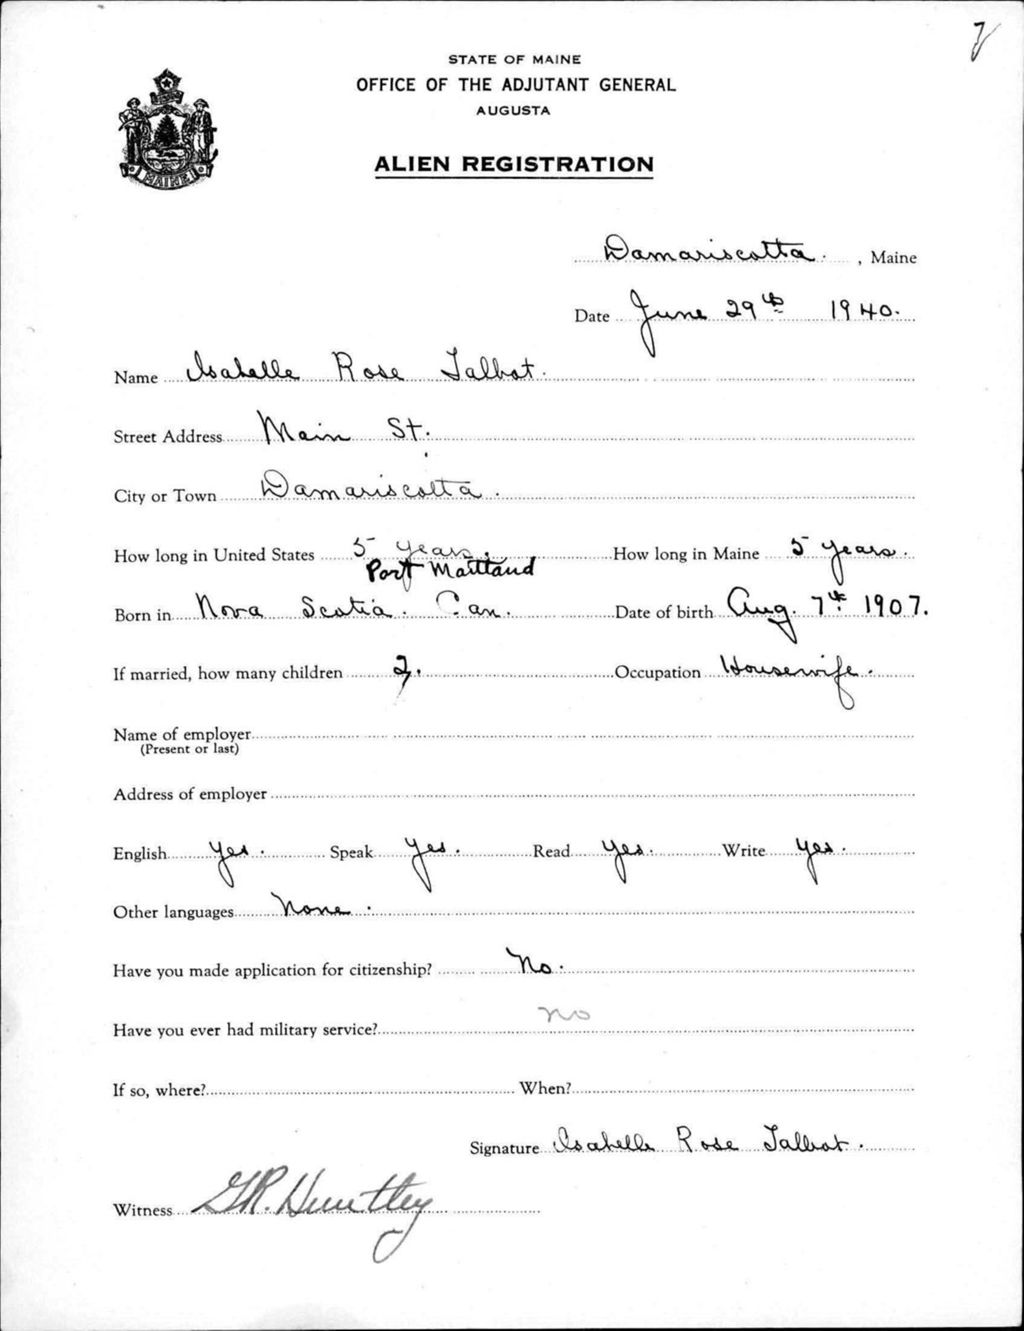 STATE OF MAINE
OFFICE OF THE ADJUTANT GENERAL
AUGUSTA
ALIEN REGISTRATION
MAINE
Damariscotta. , Maine
Date June 29th 1940.
Name Isabelle Rose Talbot.
Street Address Main St.
City or Town Damariscotta.
How long in United States 5 years. How long in Maine 5 years.
Port Maitland
Born in Nova Scotia. Can. Date of birth Aug. 7th 1907.
If married, how many children 2. Occupation Housewife.
Name of employer
(Present or last)
Address of employer
English Yes. Speak Yes. Read Yes. Write Yes.
Other languages None.
Have you made application for citizenship? No.
Have you ever had military service? no
If so, where? When?
Signature Isabelle Rose Talbot.
Witness G.R. Huntley